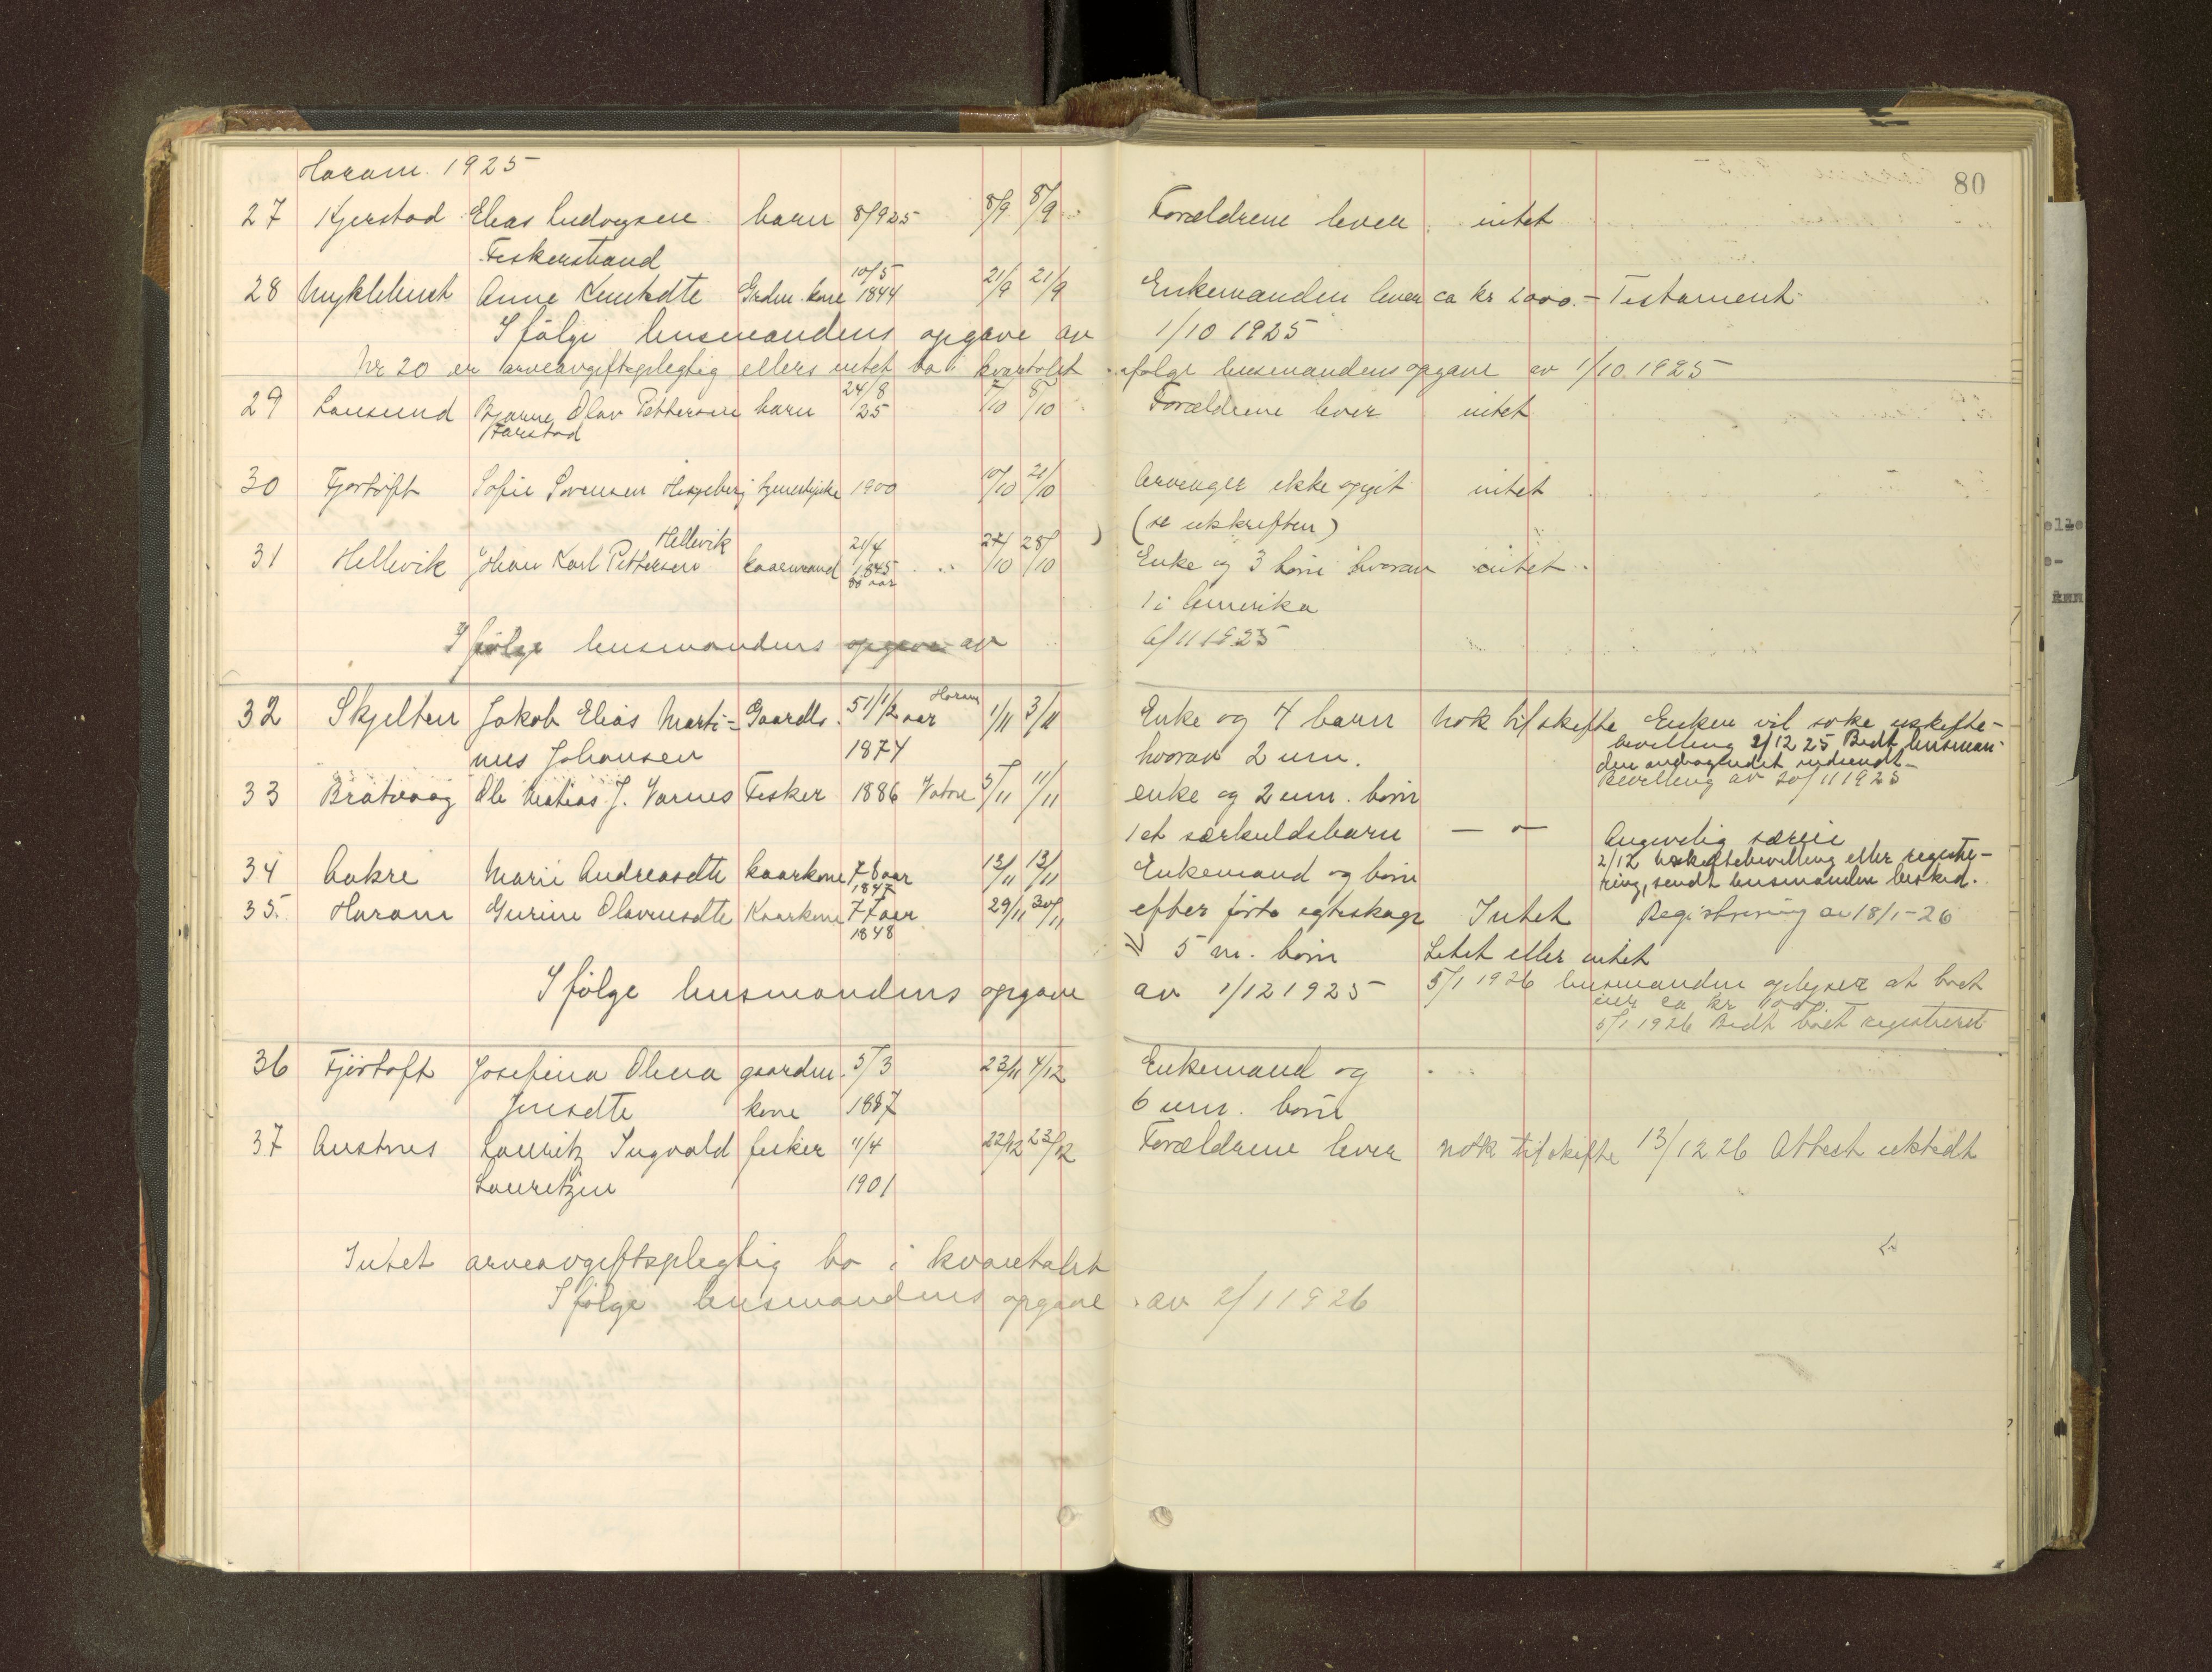 Haram. 1925
80
27 Kjerstad Elias Ludvigsen barn 8/9 25 8/9 8/9 Forældrene lever intet
Fiskerstrand
28 Myklebust Anne Knutsdtr Grdm. kone 10/5 1844 21/9 21/9 Enkemanden lever ca kr 2000.- Testament
Ifølge lensmandens opgave av 1/10 1925
Nr 20 er arveavgiftspligtig ellers intet bo i kvartalet ifølge lensmandens opgave av 1/10 1925
29 Longsund Bjarne Olav Pettersen barn 24/8 25 7/10 8/10 Forældrene lever intet
Harstad
30 Fjørtoft Sofie Sørensen tjenestepike 1900 10/10 21/10 Arvinger ikke opgit intet
(se utskriften)
31 Hellevik Johan Karl Pettersen Hellevik kaarmand 21/4 1845 80 aar 27/10 28/10 Enke og 3 børn hvorav intet
1 i Amerika
Ifølge lensmandens opgave av 6/11 1925
32 Skjelten Jakob Elias Marti- Gaardbr. 51 1/2 aar Haram 1/11 3/11 Enke og 4 barn Nok til skifte Enken vil søke uskifte-
nus Johansen 1874 hvorav 2 um. bevilling 2/12 25 Bedt lensman-
den andragendet indsendt
Bevilling av 20/11 1925
33 Brattvaag Ole Matias J. Varnes Fisker 1886 Vatne 5/11 11/11 enke og 2 um. børn
1 et særkuldsbarn — " — Angivelig særeie
2/12 Uskiftebevilling eller registre-
ring, sendt lensmanden beskid.
34 Aakre Marie Andreasdtr kaarkone 76 aar 1847 13/11 13/11 Enkemand og børn
efter første egteskap Intet Registrering av 18/1-26
35. Haram Gurine Olavusdtr Kaarkone 77 aar 1848 29/11 30/11
5 m. børn Litet eller intet
Ifølge lensmandens opgave av 1/12 1925 5/1 1926 lensmanden oplyser at boet
eier ca kr 1000.
5/1 1926 Bedt boet registreret
36 Fjørtoft Josefina Olena gaardm. 5/3 23/11 4/12 Enkemand og
Jensdtr kone 1887 6 um. børn
37 Austnes Lauritz Ingvald fisker 4/4 22/12 23/12 Forældrene lever nok til skifte 13/12 26 Attest utstedt
Lauritzen 1901
Intet arveavgiftspligtig bo i kvartalet
Ifølge lensmandens opgave av 2/1 1926